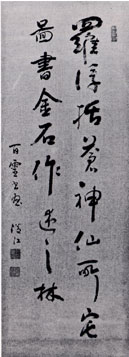 羅浮括蒼神仙所宅
圖書金石作述之林
百雲